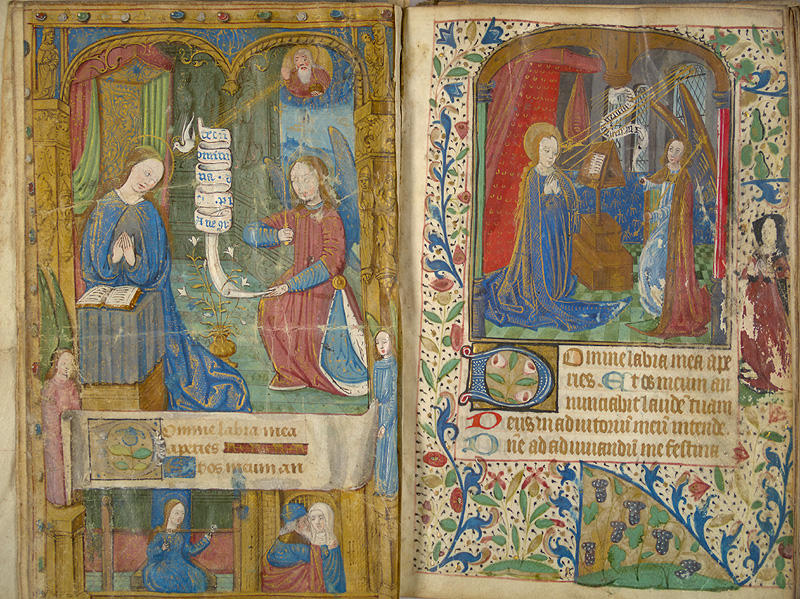 Domine labra mea
aperies
Et os meum an
Domine labra mea ape
ries. Et os meum an
nunciabit laudē tuam
Deus in adiutoriū meū intende.
Dñe ad adiuuandū me festina.